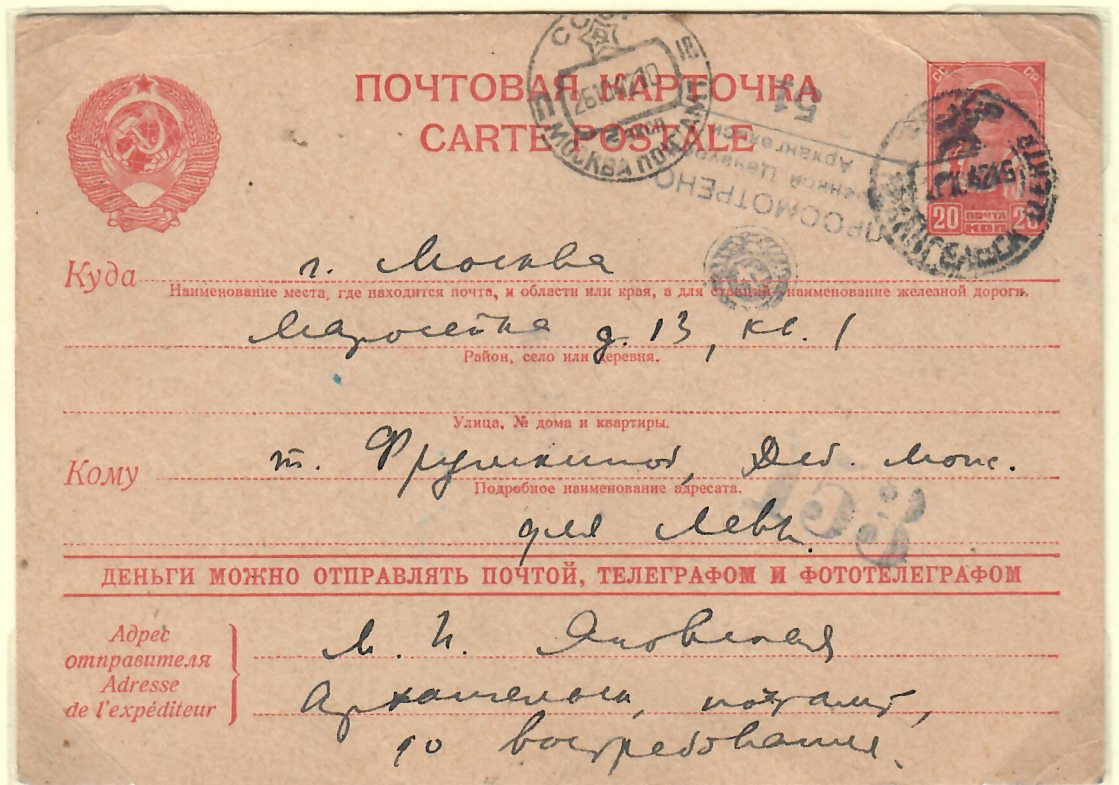 ПОЧТОВАЯ КАРТОЧКА
CARTE POSTALE
СССР
МОСКВА ПОЧТАМТ
261042 10
51
ПРОСМОТРЕНО
Военной Цензурой
Архангельск
СС СР
20 ПОЧТА 20
КОП
АРХАНГЕЛЬСК
Куда г. Москва
Наименование места, где находится почта, и области или края, а для станций, наименование железной дороги.
Маросейка д. 13, кв. 1
Район, село или деревня.
Улица, № дома и квартиры.
Кому т. Фрумкиной,
Подробное наименование адресата.
для Левы.
153
ДЕНЬГИ МОЖНО ОТПРАВЛЯТЬ ПОЧТОЙ, ТЕЛЕГРАФОМ И ФОТОТЕЛЕГРАФОМ
Адрес
отправителя
Adresse
de l'expéditeur
М. И. Яновская
Архангельск, почтамт,
до востребования.